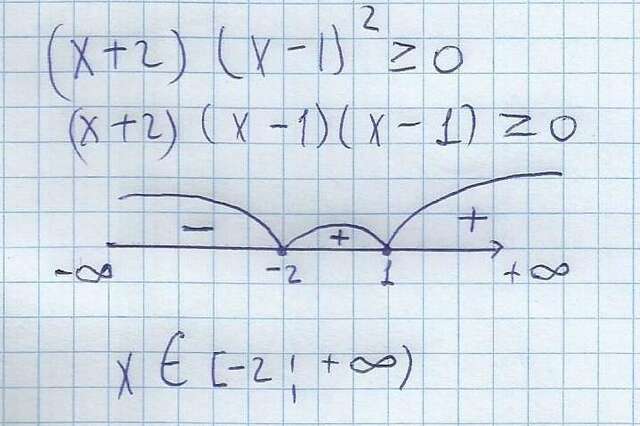 (x+2) (x-1)² ≥ 0
(x+2) (x-1)(x-1) ≥ 0
- + +
-∞ -2 1 +∞
x ∈ [-2; +∞)